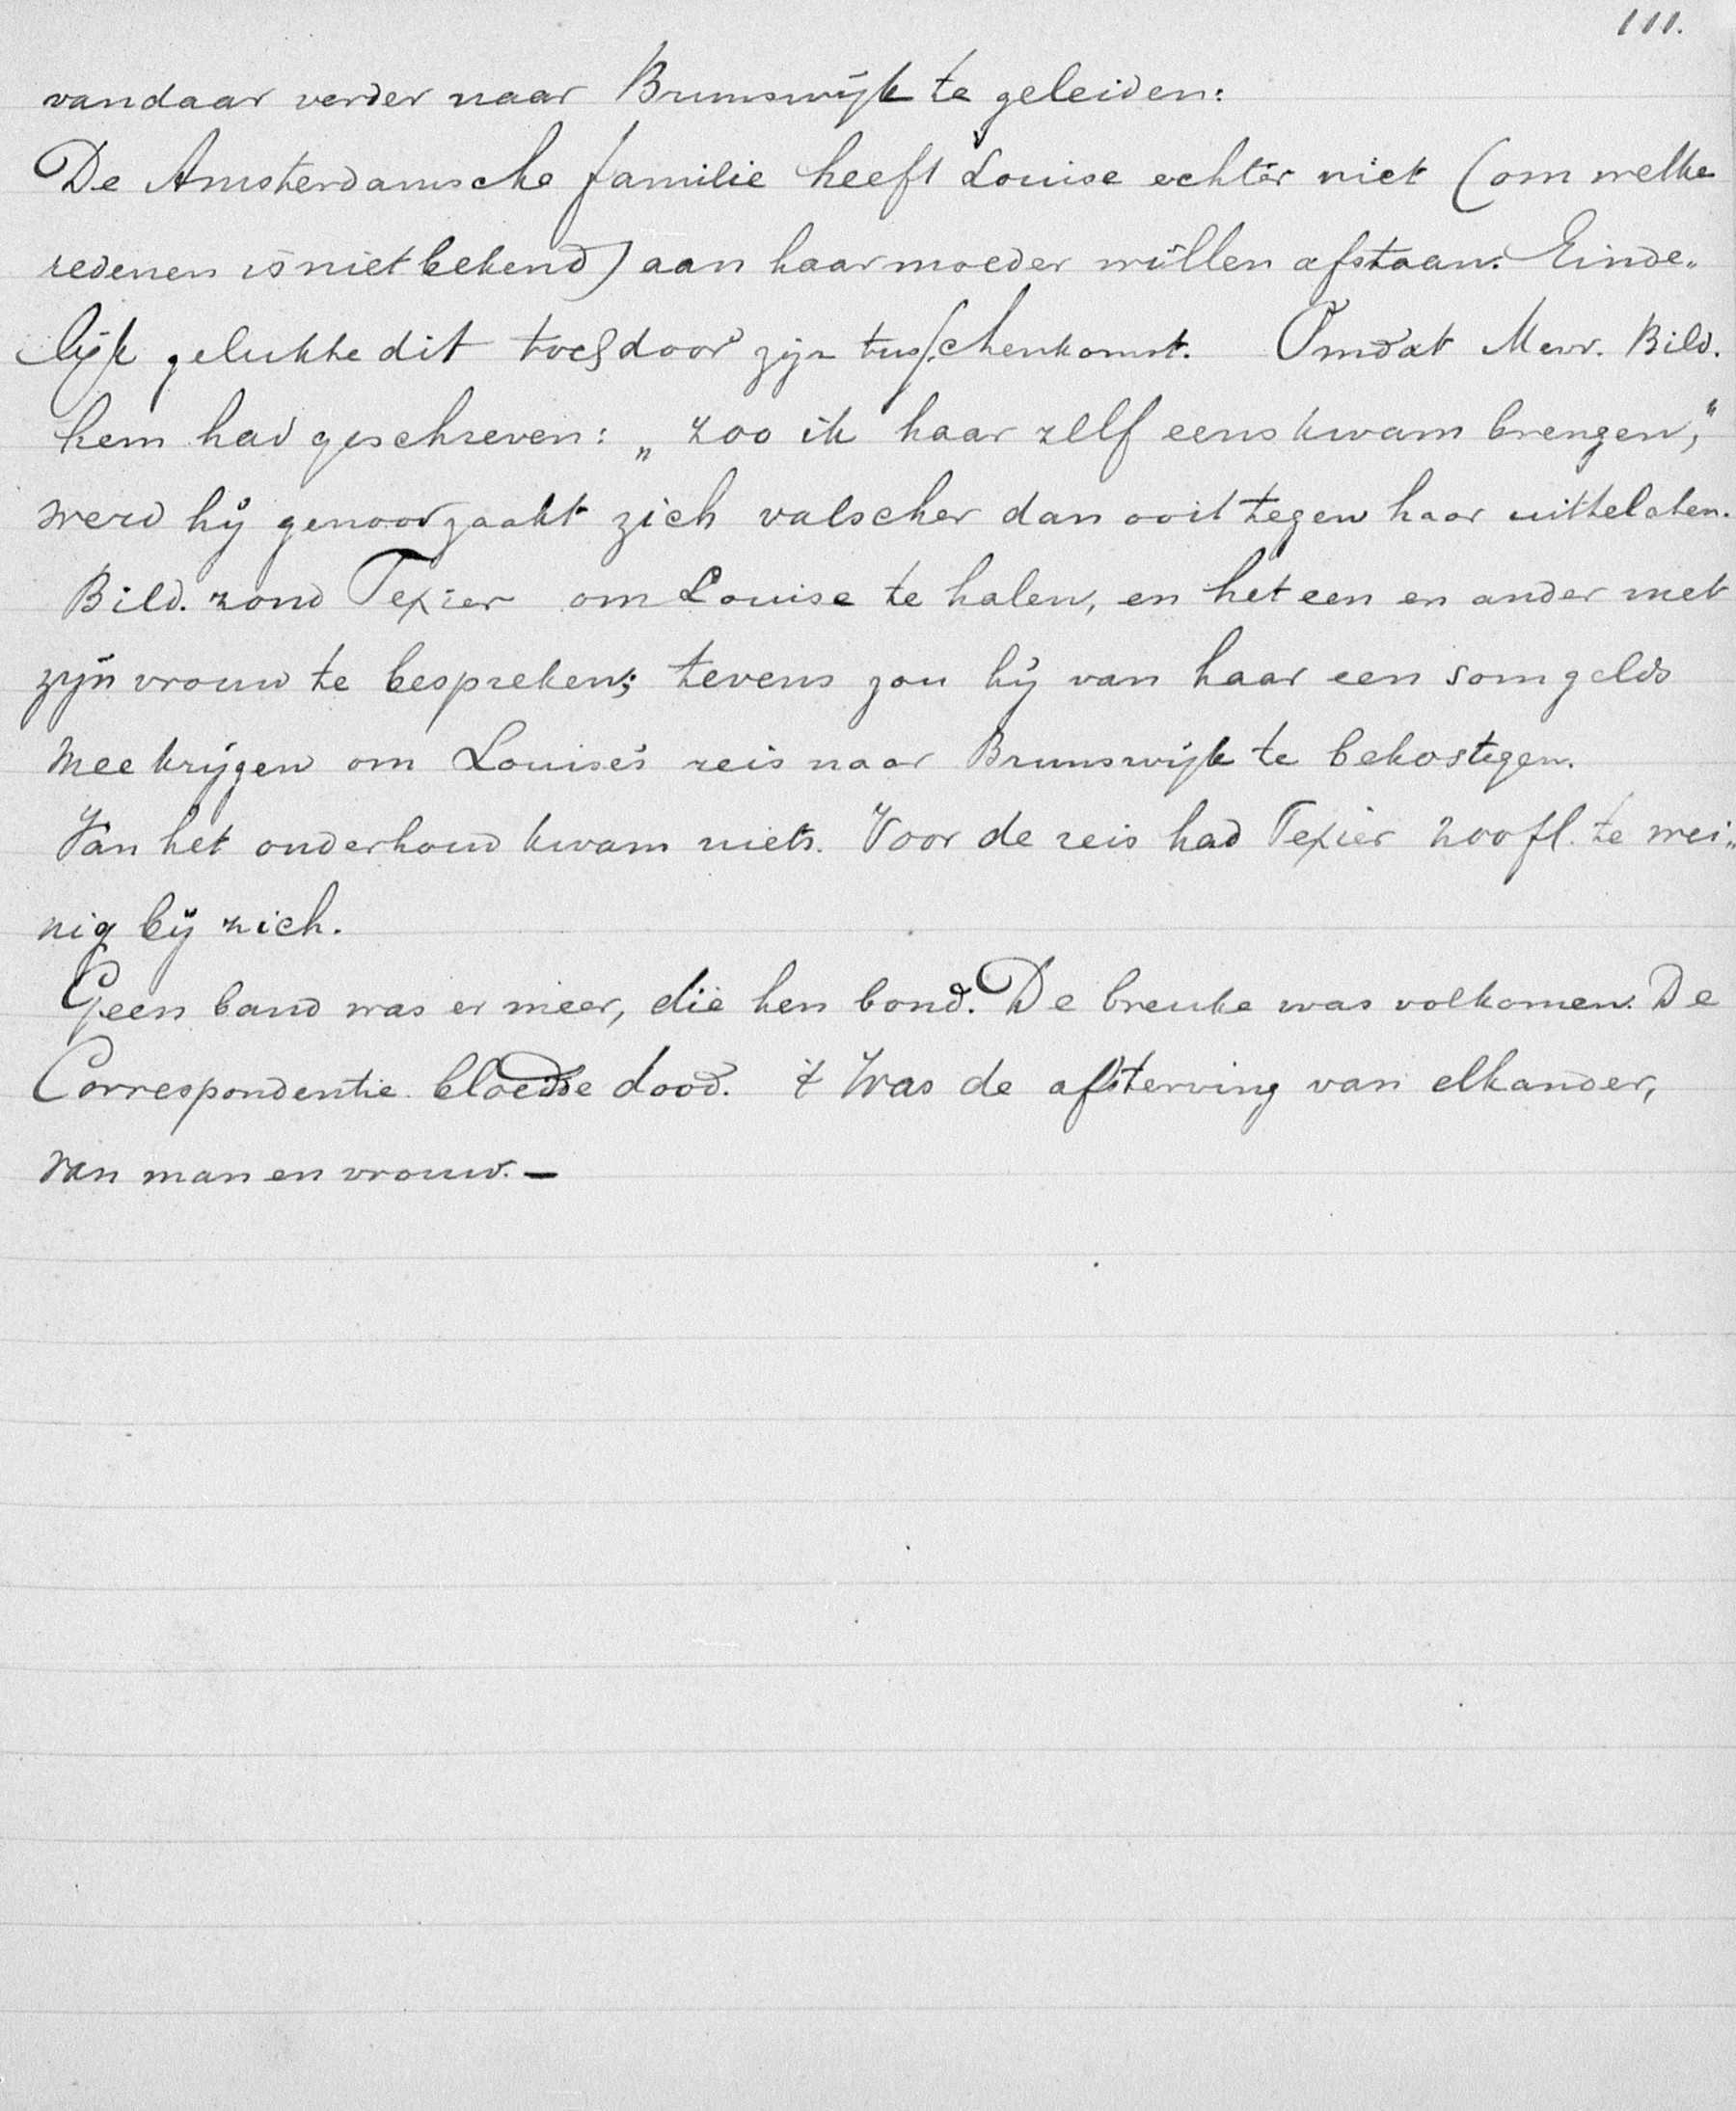 111.
vandaar verder naar Brunswijk te geleiden:
De Amsterdamsche familie heeft Louise echter niet (om welke
redenen is niet bekend) aan haar moeder willen afstaan. Einde„
lijk gelukte dit toch door zijn tusschenkomst. Omdat Mevr. Bild.
hem had geschreven: „zoo ik haar zelf eens kwam brengen,”
werd hij genoodzaakt zich valscher dan ooit tegen haar uittelaten.
Bild. zond Texier om Louise te halen, en het een en ander met
zijn vrouw te bespreken; tevens zou hij van haar een som gelds
meekrijgen om Louise's reis naar Brunswijk te bekostigen.
Van het onderhoud kwam niets. Voor de reis had Texier 200 fl. te wei„
nig bij zich.
Geen band was er meer, die hen bond. De breuke was volkomen. De
Correspondentie bloedde dood. 't Was de afsterving van elkander,
van man en vrouw. —